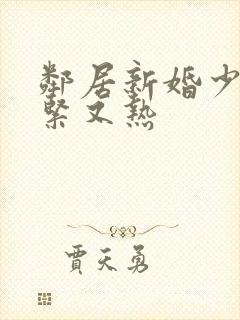 鄰居新婚少
緊又熱
賈天勇